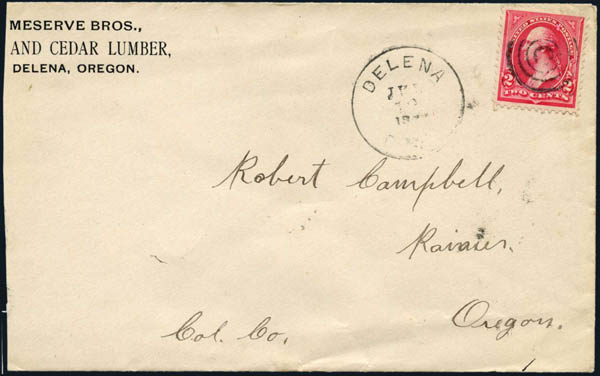 MESERVE BROS.,
AND CEDAR LUMBER,
DELENA, OREGON.
DELENA
UNITED STATES POSTAGE
2 2
TWO CENTS
Robert Campbell,
Rainier.
Col. Co,
Oregon.